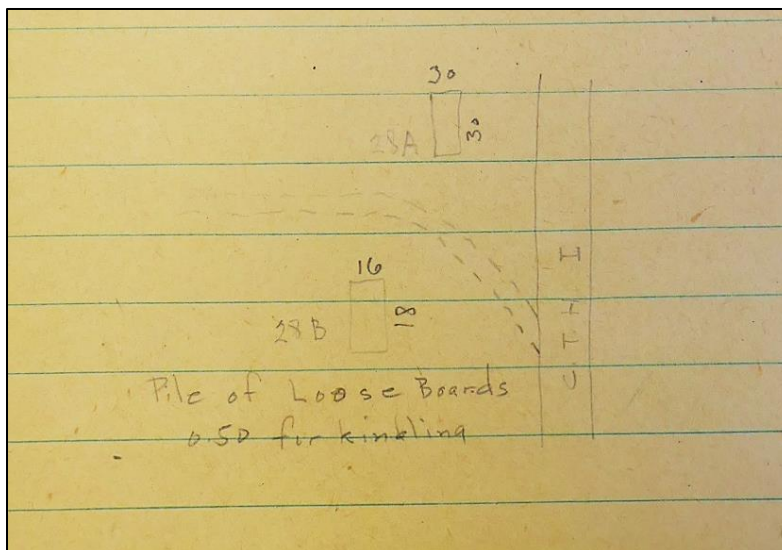 30
28A
30
16
28B
18
CTH I
Pile of Loose Boards
0.50 for kindling